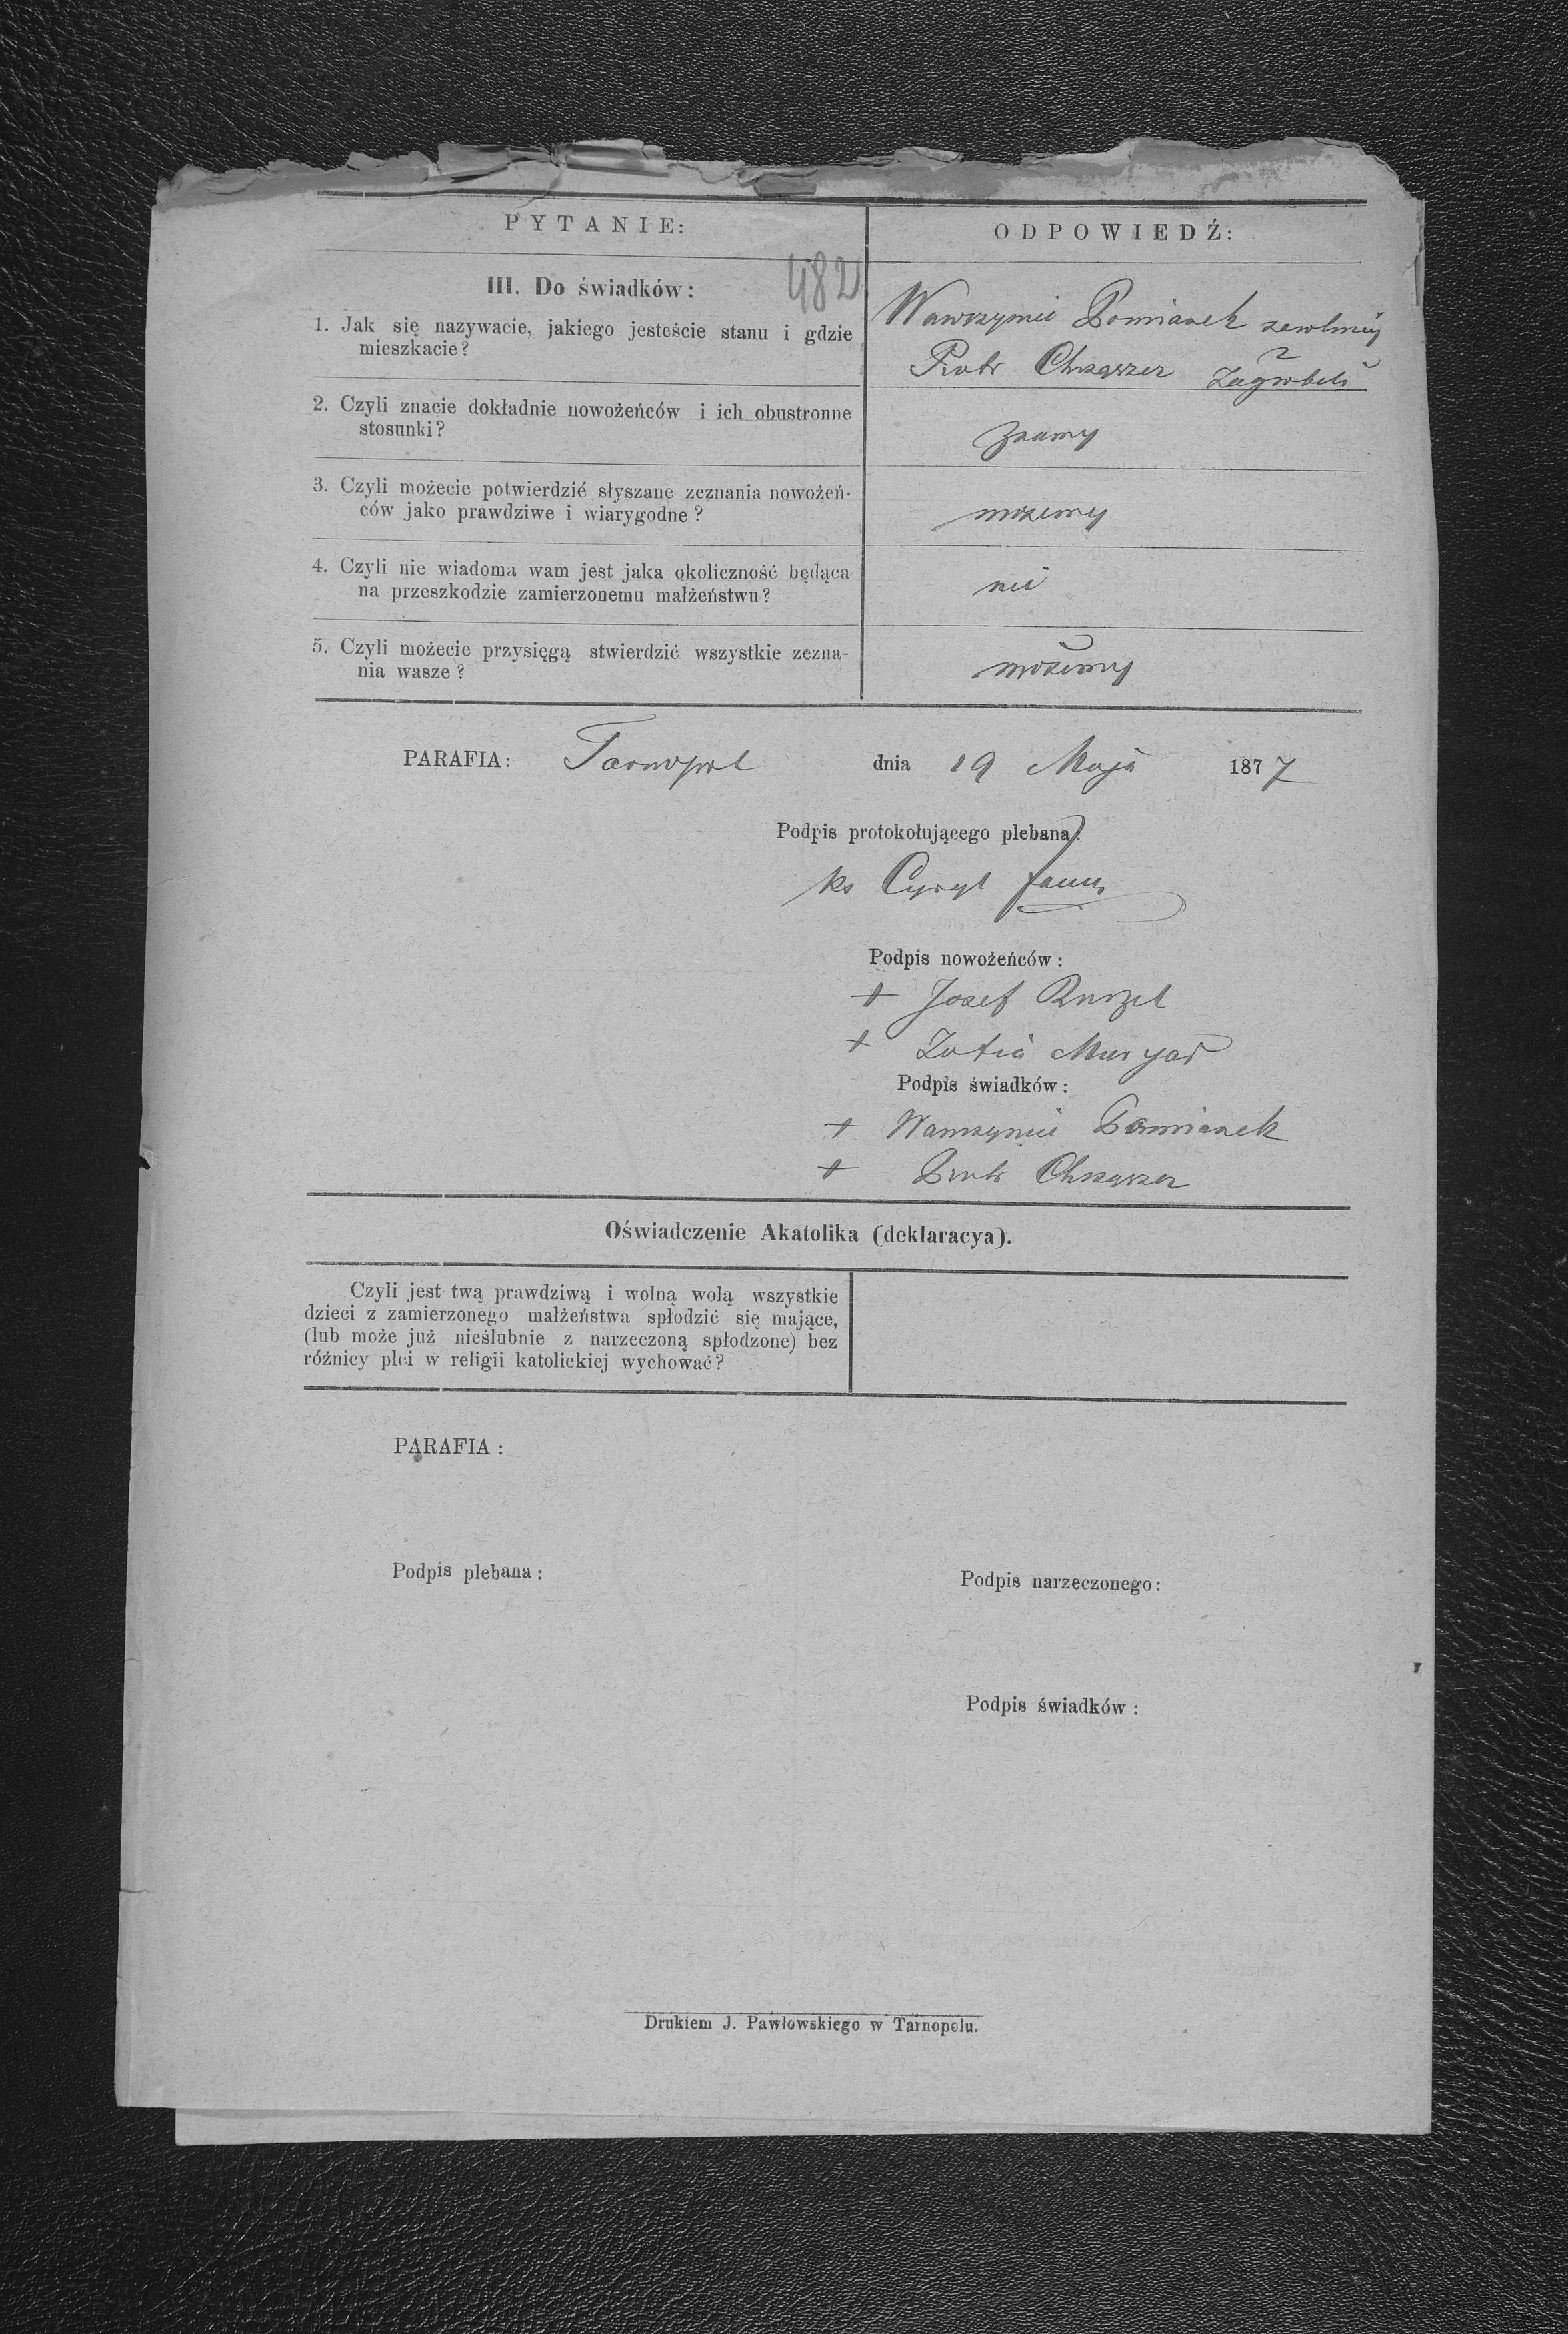 PYTANIE:
ODPOWIEDŹ:
482
III. Do świadków:
1. Jak się nazywacie, jakiego jesteście stanu i gdzie
mieszkacie?
Wawrzyniec Pomianek
Piotr Chrząszcz Zagrobela
2. Czyli znacie dokładnie nowożeńców i ich obustronne
stosunki?
znamy
3. Czyli możecie potwierdzić słyszane zeznania nowożeń-
ców jako prawdziwe i wiarygodne?
możemy
4. Czyli nie wiadoma wam jest jaka okoliczność będąca
na przeszkodzie zamierzonemu małżeństwu?
nie
5. Czyli możecie przysięgą stwierdzić wszystkie zezna-
nia wasze?
możemy
PARAFIA: Tarnopol dnia 19 Maja 1877
Podpis protokołującego plebana:
ks Cyryl
Podpis nowożeńców:
+ Josef
+ Zofia
Podpis świadków:
+ Wawrzyniec Pomianek
+ Piotr Chrząszcz
Oświadczenie Akatolika (deklaracya).
Czyli jest twą prawdziwą i wolną wolą wszystkie
dzieci z zamierzonego małżeństwa spłodzić się mające,
(lub może już nieślubnie z narzeczoną spłodzone) bez
różnicy płci w religii katolickiej wychować?
PARAFIA:
Podpis plebana:
Podpis narzeczonego:
Podpis świadków:
Drukiem J. Pawłowskiego w Tarnopolu.